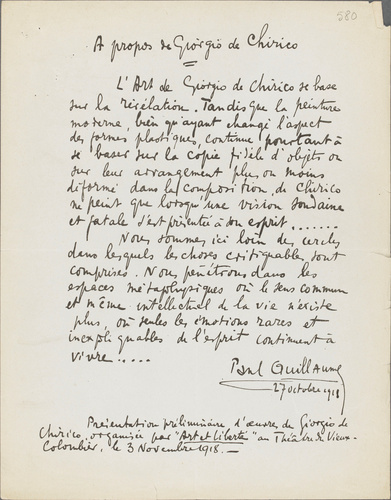 580
A propos de Giorgio de Chirico
L'Art de Giorgio de Chirico se base
sur la révélation. Tandis que la peinture
moderne, bien qu'ayant changé l'aspect
des formes plastiques, continue pourtant à
se baser sur la copie fidèle d'objets ou
sur leur arrangement plus ou moins
déformé dans la composition, de Chirico
ne peint que lorsqu'une vision soudaine
et fatale s'est présentée à son esprit .......
Nous sommes ici loin des cercles
dans lesquels les choses critiquables sont
comprises. Nous pénétrons dans les
espaces métaphysiques où le sens commun
et même intellectuel de la vie n'existe
plus, où seules les émotions rares et
inexpliquables de l'esprit continuent à
vivre .....
Paul Guillaume
27 octobre 1918
Présentation préliminaire d'œuvres de Giorgio de
Chirico, organisée par "Art et Liberté" au Théâtre du Vieux-
Colombier, le 3 Novembre 1918. —